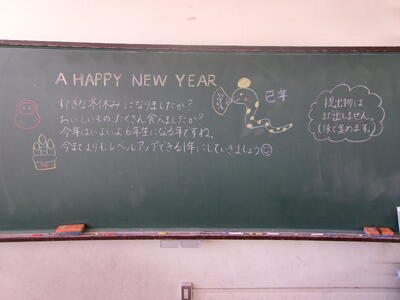 A HAPPY NEW YEAR
すてきな冬休みになりましたか?
おいしいもの、たくさん食べましたか?
今年はいよいよ6年生になる年ですね。
今までよりもレベルアップできる1年にしていきましょう
巳年
提出物は
まだ出しません。
後で集めます。